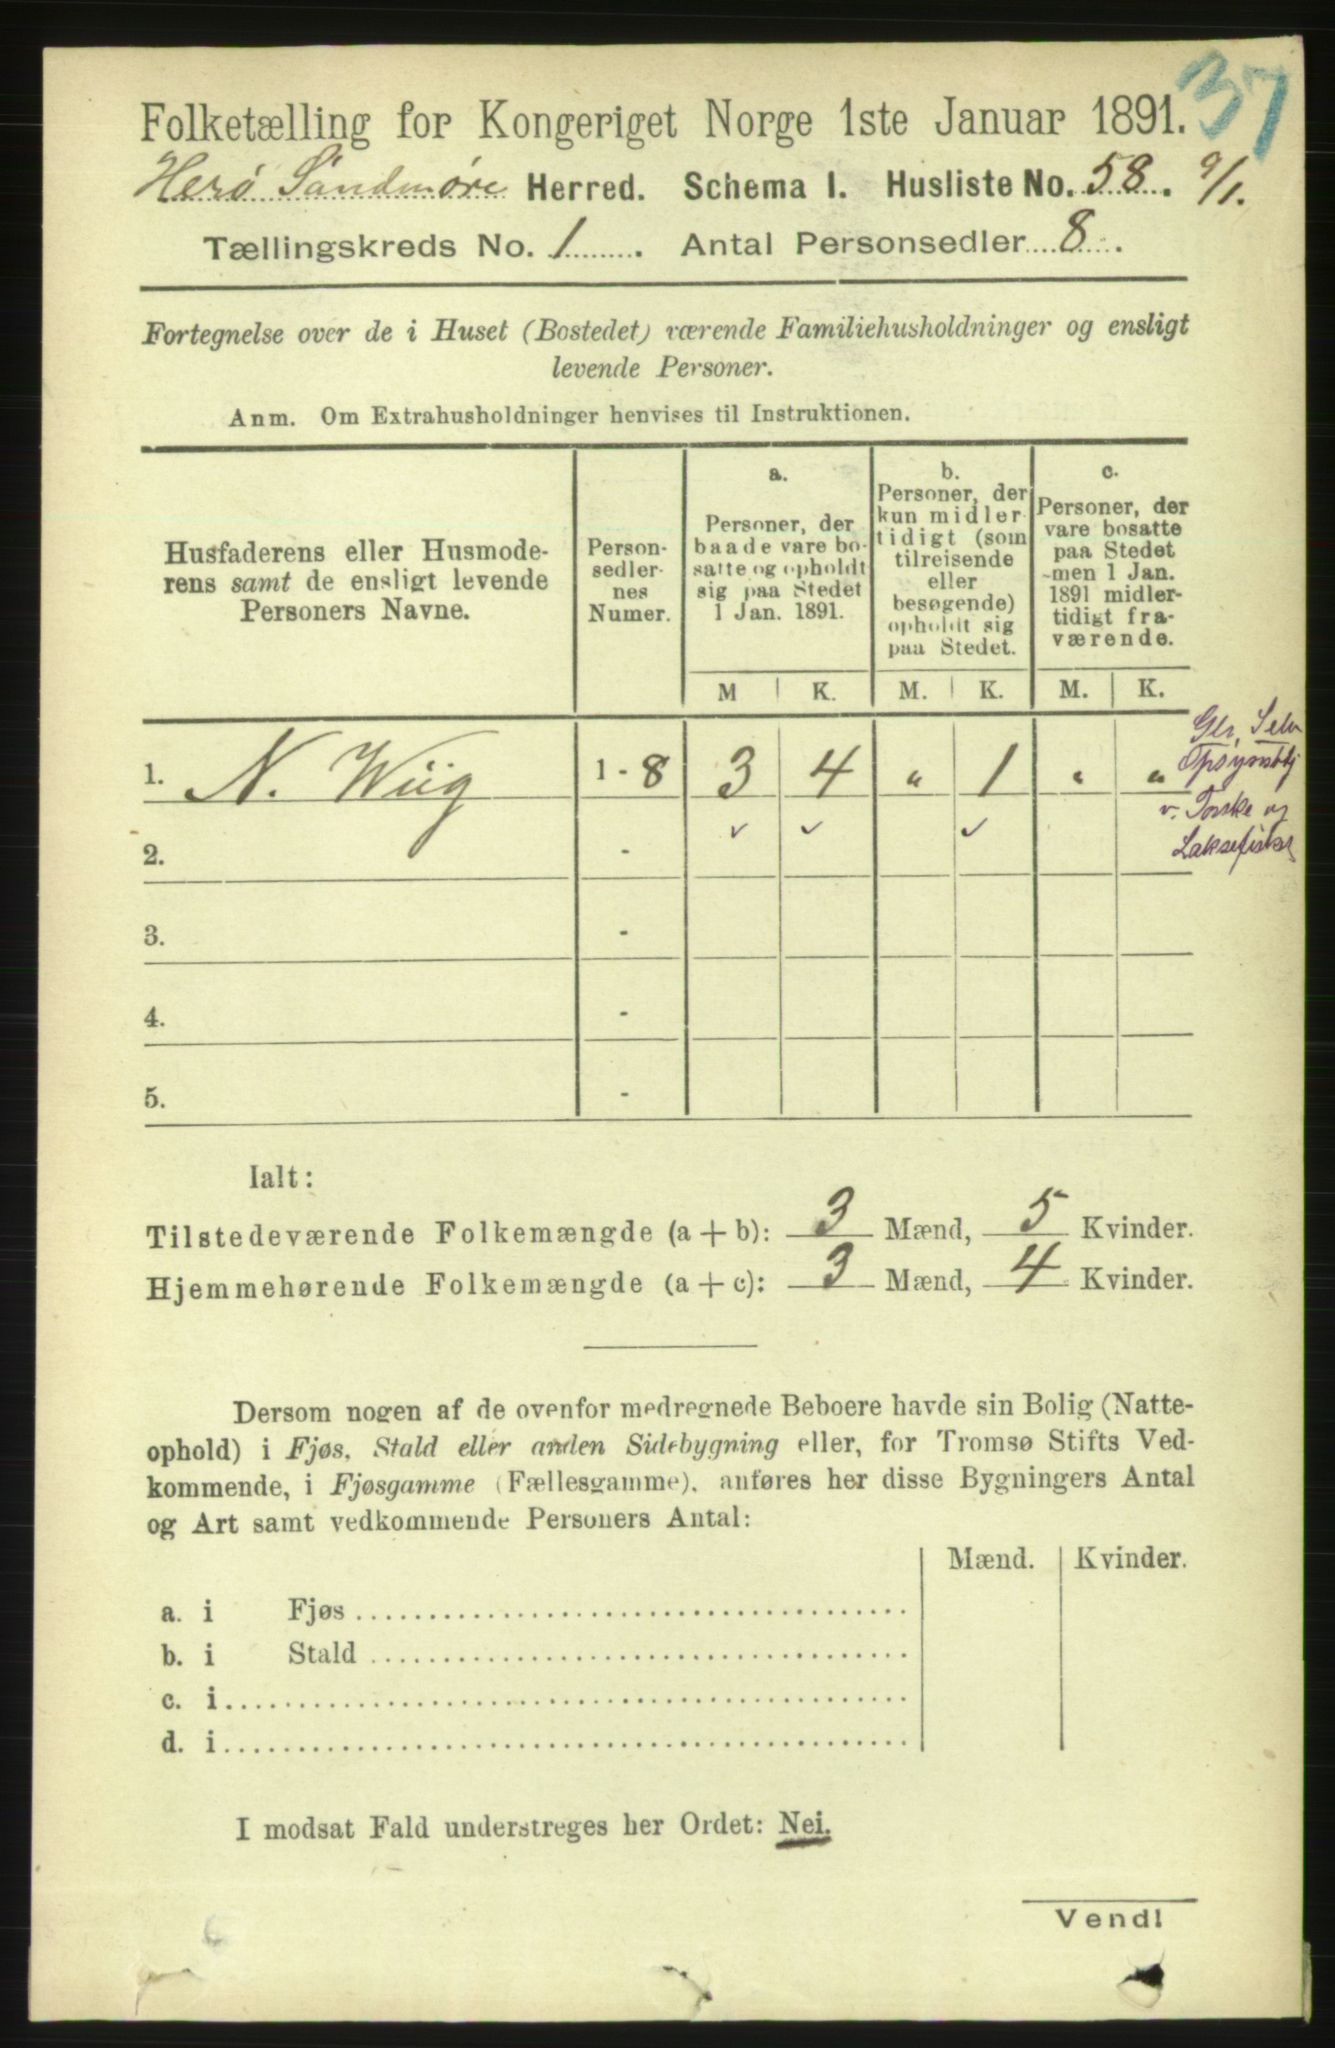 37
Folketælling for Kongeriget Norge 1ste Januar 1891.
Herö Søndmøre Herred. Schema I. Husliste No. 58. 9/1.
Tællingskreds No. 1. Antal Personsedler 8.
Fortegnelse over de i Huset (Bostedet) værende Familiehusholdninger og ensligt
levende Personer.
Anm. Om Extrahusholdninger henvises til Instruktionen.
Husfaderens eller Husmode-
rens samt de ensligt levende
Personers Navne.
Person-
sedler-
nes
Numer.
a.
Personer, der
baade vare bo-
satte og opholdt
sig paa Stedet
1 Jan. 1891.
b.
Personer, der
kun midler-
tidigt (som
tilreisende
eller
besøgende)
opholdt sig
paa Stedet.
c.
Personer, der
vare bosatte
paa Stedet
men 1 Jan.
1891 midler-
tidigt fra-
værende.
M K. M. K. M. K.
1. N. Wiig 1-8 3 4 " 1 " "
v. Torske og
Laksefisket
2. -
3. -
4. -
5. -
Ialt:
Tilstedeværende Folkemængde (a + b): 3 Mænd, 5 Kvinder.
Hjemmehørende Folkemængde (a + c): 3 Mænd, 4 Kvinder.
Dersom nogen af de ovenfor medregnede Beboere havde sin Bolig (Natte-
ophold) i Fjøs, Stald eller anden Sidebygning eller, for Tromsø Stifts Ved-
kommende, i Fjøsgamme (Fællesgamme), anføres her disse Bygningers Antal
og Art samt vedkommende Personers Antal:
Mænd. Kvinder.
a. i Fjøs
b. i Stald
c. i
d. i
I modsat Fald understreges her Ordet: Nei.
Vend!